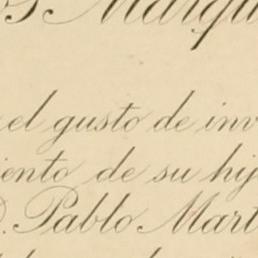 os Marqu
el gusto de inv
iento de su hij
D. Pablo Mart